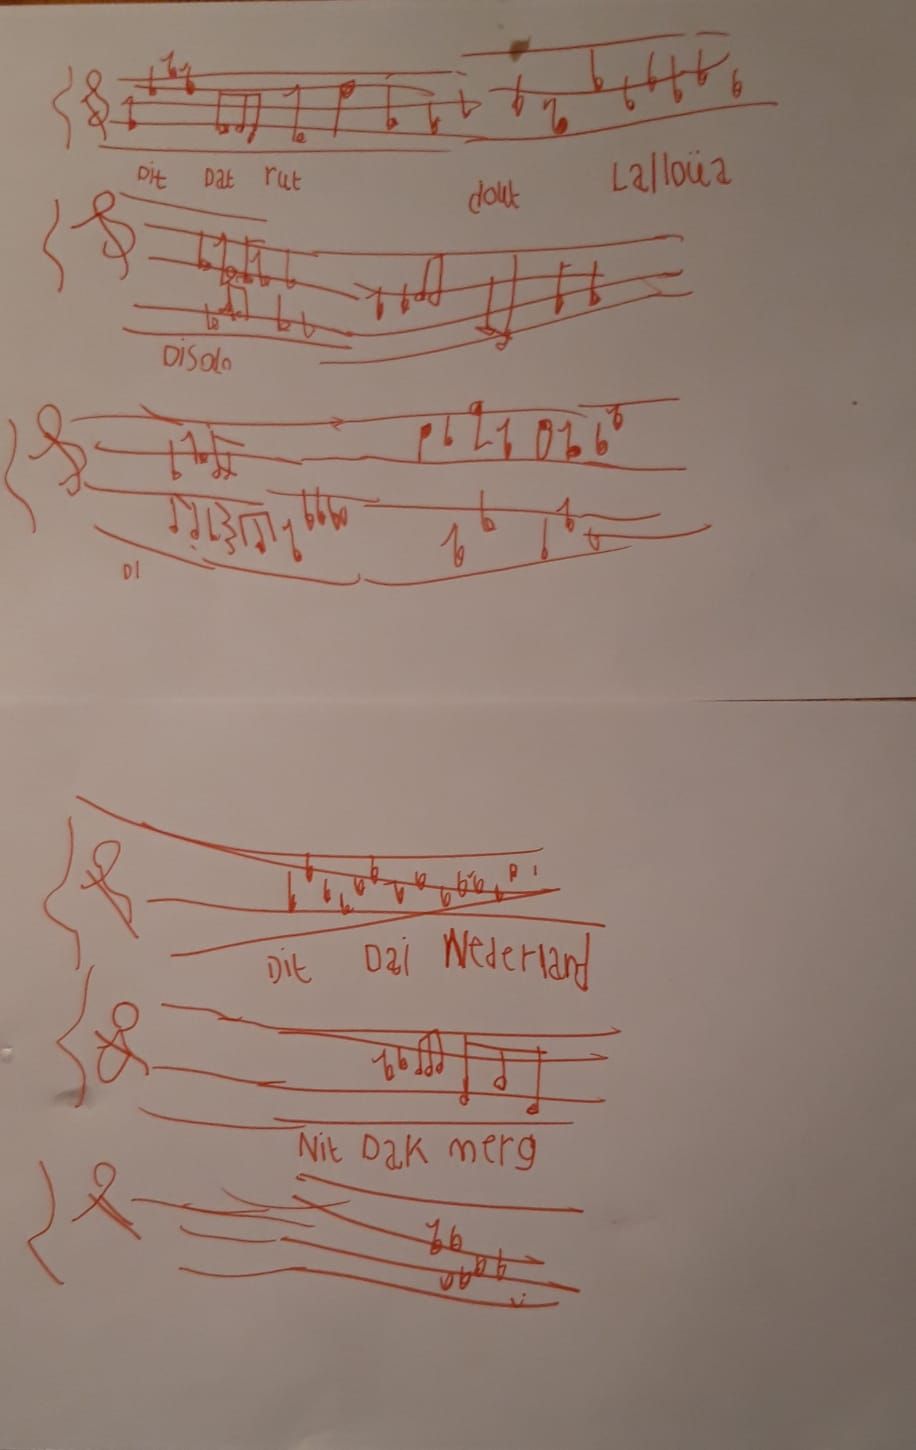 Dit Dat rut dout Lalloüa
Disolo
DI
Dit Dai Nederland
Nit Dak merg